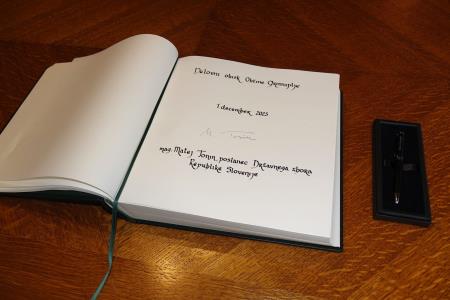 Delovni obisk Občine Grosuplje
1. december 2023
M Tonin
mag. Matej Tonin, poslanec Državnega zbora
Republike Slovenije